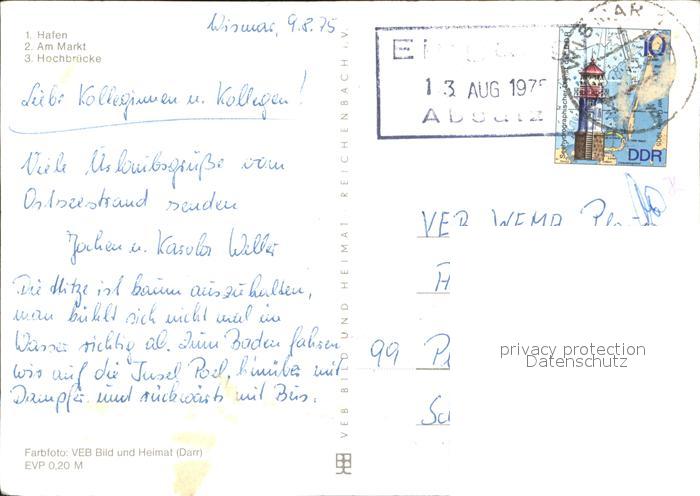 Wismar, 9.8.75
1. Hafen
2. Am Markt
3. Hochbrücke
Liebe Kolleginnen u. Kollegen!
Viele Urlaubsgrüße vom
Ostseestrand senden
Jochen u.
Die Hitze ist kaum auszuhalten,
man kühlt sich nicht mal im
Wasser richtig ab. Zum Baden fahren
wir auf die Insel Poel, hinüber mit
Dampfer und rückwärts mit Bus.
Farbfoto: VEB Bild und Heimat (Darr)
EVP 0,20 M
VEB BILD UND HEIMAT REICHENBACH i.V.
13. AUG 1975
Absatz
10
DDR
VEB WEMA
99
privacy protection
Datenschutz